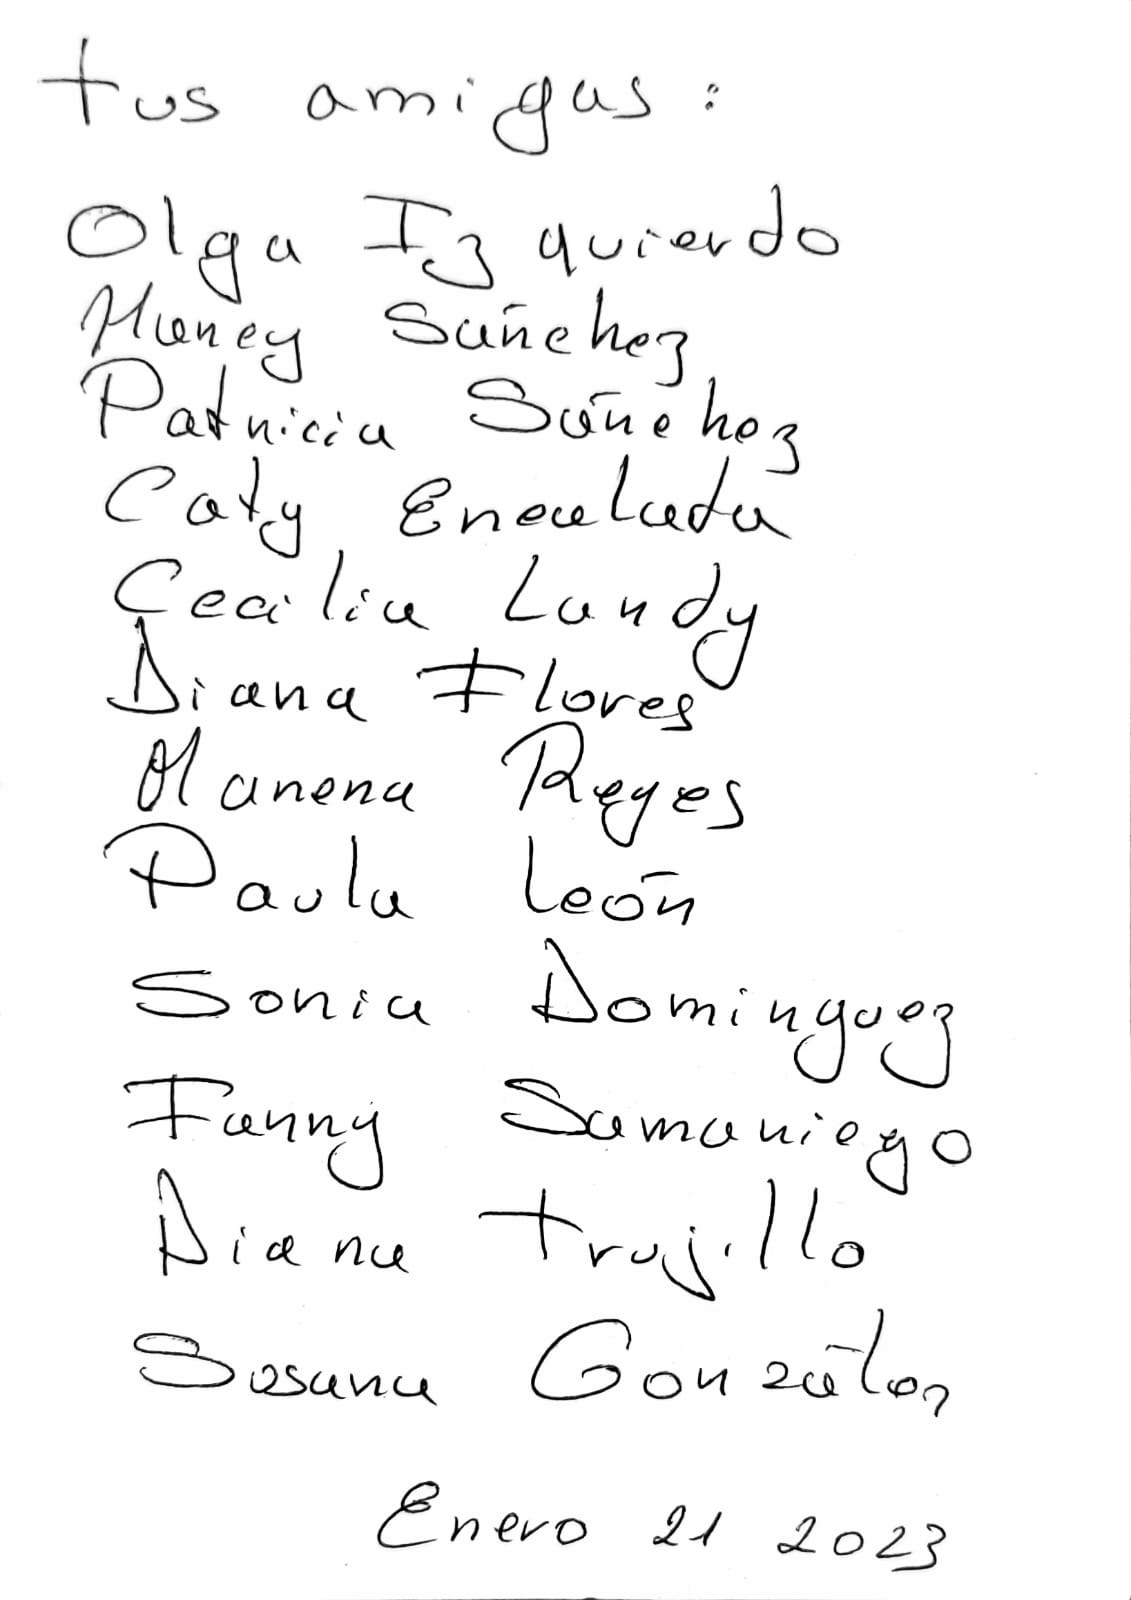 tus amigas:
Olga Izquierdo
Sánchez
Patricia Sánchez
Caty Encalada
Cecilia Landy
Diana Flores
Manena Reyes
Paula León
Sonia Dominguez
Fanny Samaniego
Diana Trujillo
Susana González
Enero 21 2023